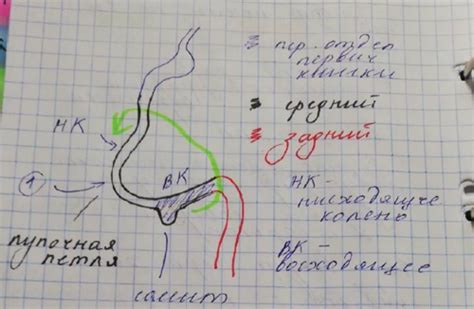 пер. отдел
первич
кишки
средний
задний
НК
ВК
НК -
нисходящее
колено
1
пупочная
петля
ВК -
восходящее